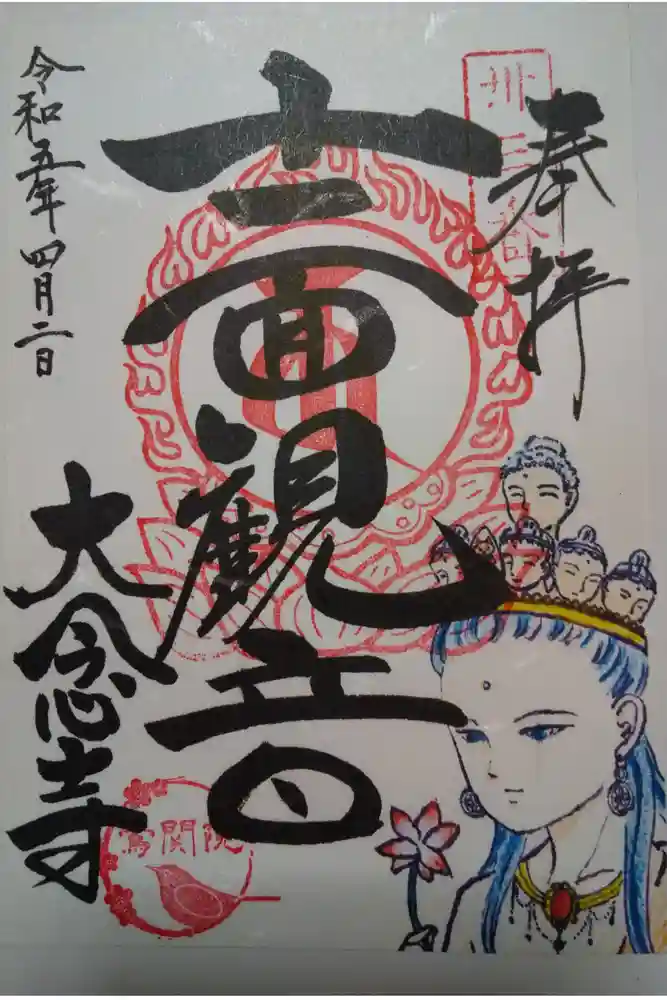 奉拝
卅三番
十一面観音
令和五年四月二日
大念寺
鶯関院